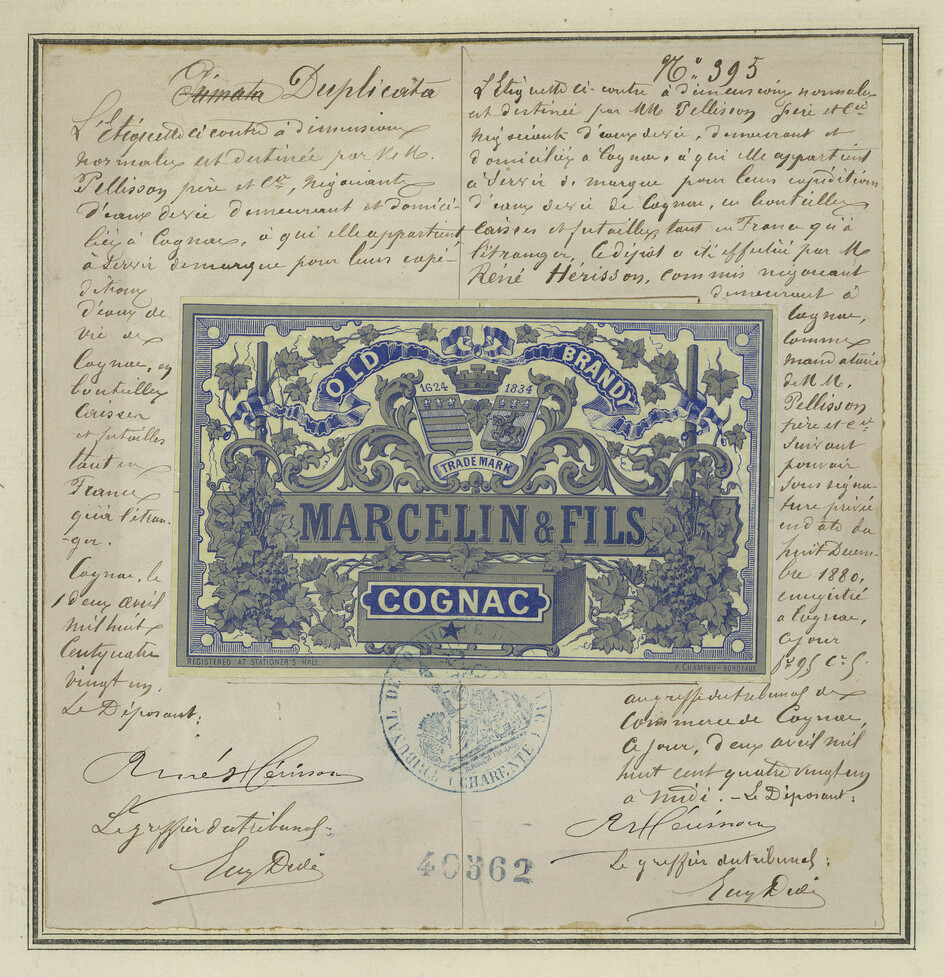 Primata Duplicata
L'Etiquette ci contre à dimensions
normales est destinée par M.M.
Pellisson père et Cie, Négociants
d'eaux de vie demeurant et domici-
liés à Cognac, à qui elle appartient
à servir de marque pour leurs expé-
ditions
d'eaux de
vie de
Cognac, en
bouteilles
Caisses
et futailles
tant en
France
qu'à l'étran-
-ger.
Cognac, le
deux avril
mil huit
Cent quatre
vingt un.
Le Déposant:
René Hérisson
Le greffier du tribunal:
Eug Dédé
No 395
L'Etiquette ci-contre à dimensions normales
est destinée par MM Pellisson père et Cie
Négociants d'eaux de vie, demeurant et
domiciliés à Cognac, à qui elle appartient
à servir de marque pour leurs expéditions
d'eaux de vie de Cognac, en bouteilles
caisses et futailles tant en France qu'à
l'étranger, le dépôt a été effectué par M
René Hérisson, commis négociant
demeurant à
Cognac,
comme
mandataire
de MM.
Pellisson
père et Cie
suivant
pouvoir
sous signa-
ture privée
en date du
huit Décem-
bre 1880,
enregistré
à Cognac,
ce jour
fo 95 Ce 5
au greffe du tribunal de
Commerce de Cognac,
Ce jour, deux avril mil
huit cent quatre vingt un
à midi. - Le Déposant:
R Hérisson
Le greffier du tribunal:
Eug Dédé
OLD BRANDY
1624 1834
TRADE MARK
MARCELIN & FILS
COGNAC
REGISTERED AT STATIONER'S HALL.
P. CHAMEAU - BORDEAUX
TRIBUNAL DE COMMERCE DE COGNAC
(CHARENTE)
40362